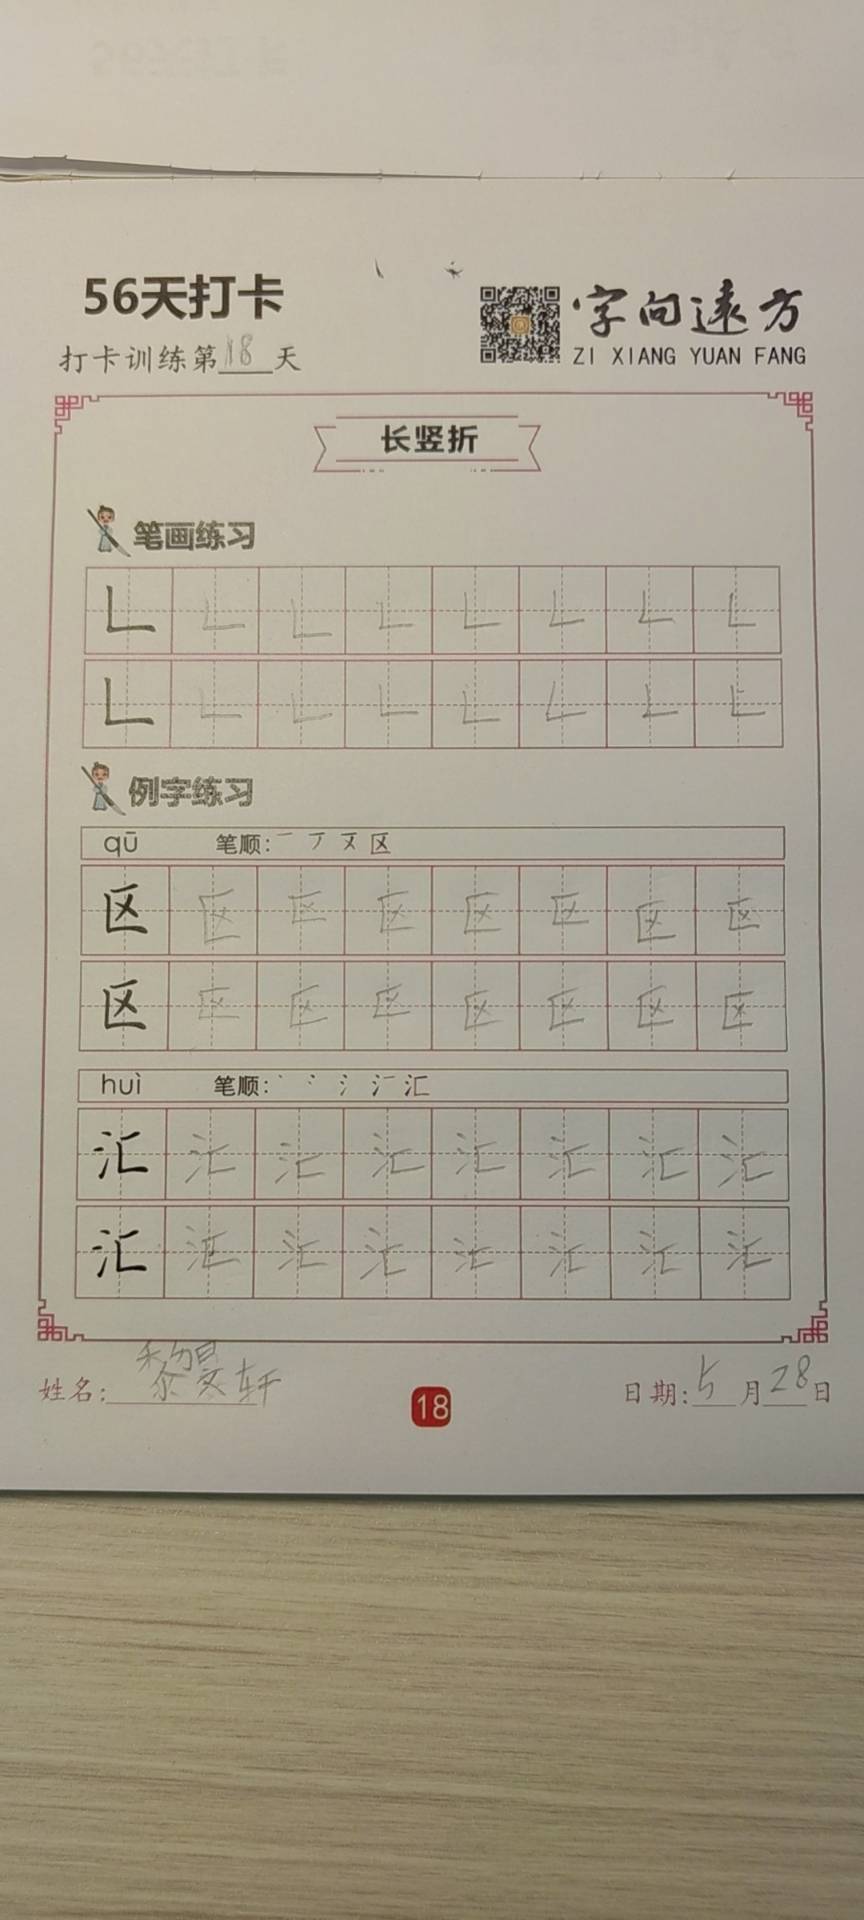 56天打卡
字向远方
打卡训练第18天
ZI XIANG YUAN FANG
长竖折
笔画练习
例字练习
qū 笔顺: 区
区 区 区 区 区 区 区 区
区 区 区 区 区 区 区 区
huì 笔顺: 汇
汇 汇 汇 汇 汇 汇 汇 汇
汇 汇 汇 汇 汇 汇 汇 汇
姓名: 黎旻轩
18
日期: 5月28日